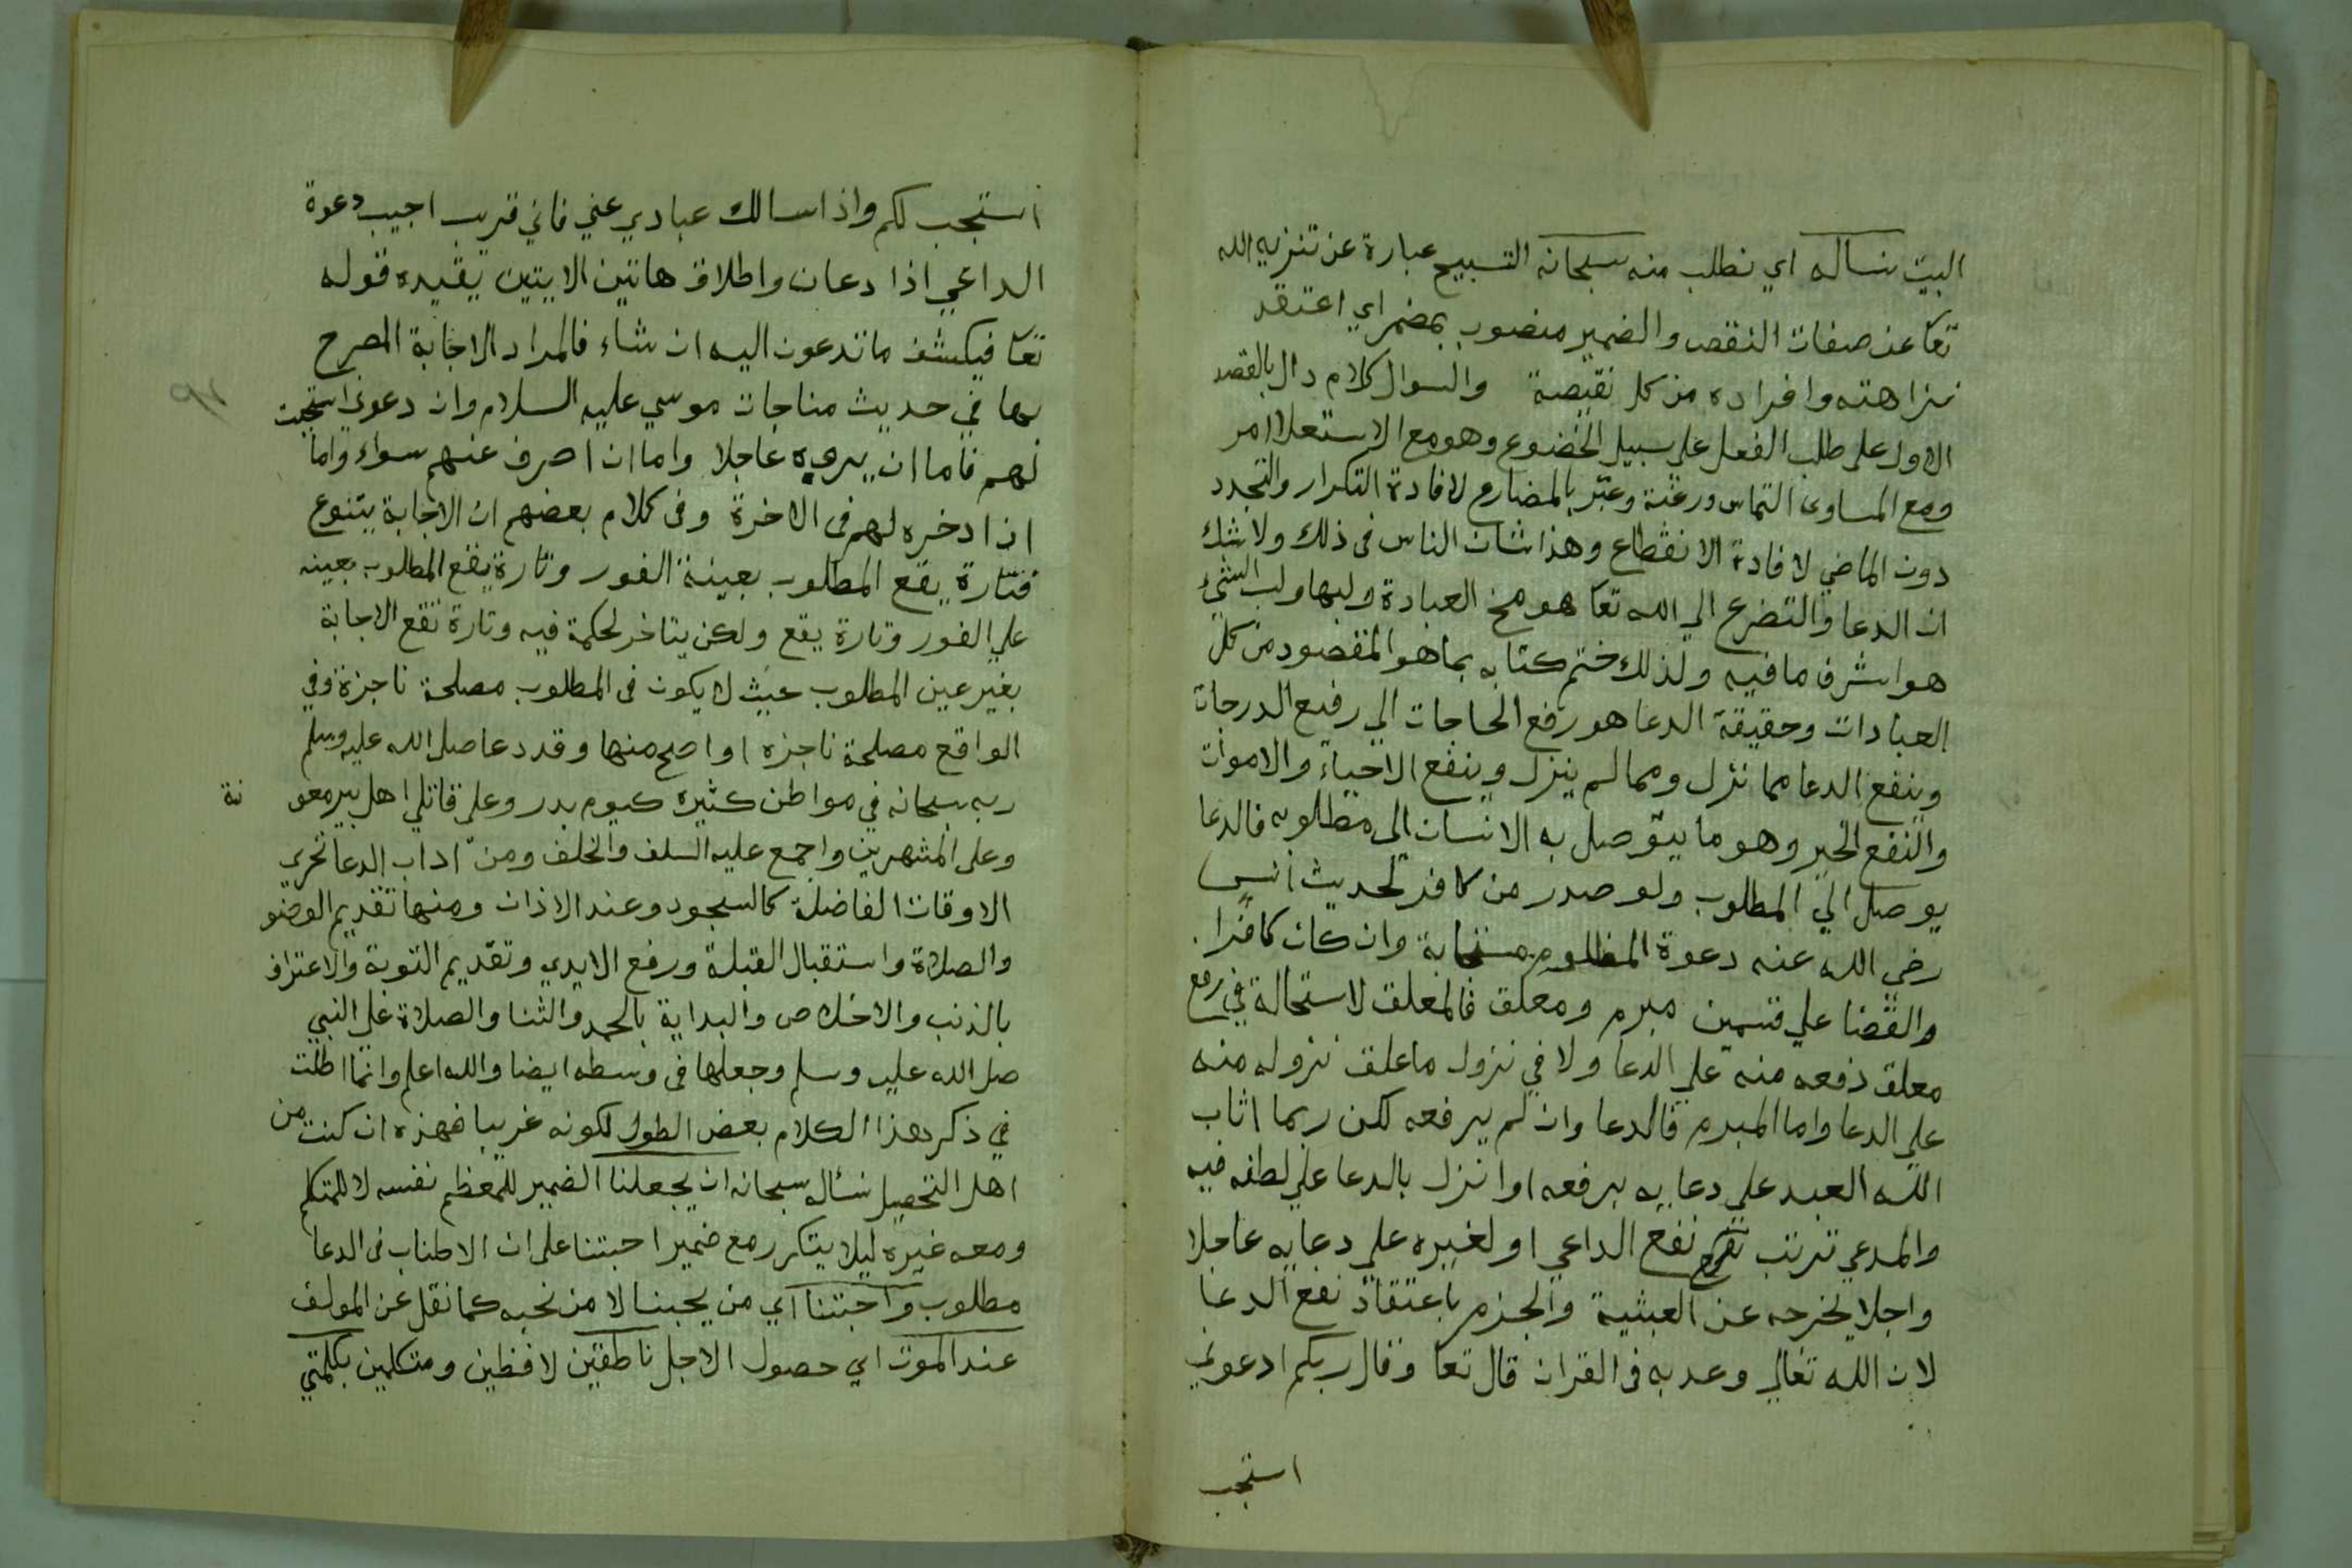 البيت نساله اي نطلب منه سبحانه التسبيح عبارة عن تنزيه الله
تعا عن صفات النقص والضمير منصوب بمضمر اي اعتقد
نزاهته وافراده من كل نقيصة والسوال كلام دال بالقصد
الاول على طلب الفعل على سبيل الخضوع وهو مع الاستعلا امر
ومع المساوى التماس ورغبة وعبّر بالمضارع لافادة التكرار والتجدد
دون الماضي لافادة الانقطاع وهذا شان الناس فى ذلك ولا شك
ان الدعا والتضرع الي الله تعا هو مخ العبادة ولبها ولب الشيء
هو اشرف ما فيه ولذلك ختم كتابه بما هو المقصود من كل
العبادات وحقيقة الدعا هو رفع الحاجات الي رفيع الدرجات
وينفع الدعا مما نزل ومما لم ينزل وينفع الاحياء والاموات
والنفع الخير وهو ما يتوصل به الانسان الى مطلوبه فالدعا
يوصل الي المطلوب ولو صدر من كافر لحديث أنس
رضي الله عنه دعوة المظلوم مستجابة وان كان كافرا
والقضا علي قسمين مبرم ومعلق فالمعلق لا استحالة في رفع
معلق دفعه منه علي الدعا ولا في نزول ما علق نزوله منه
علي الدعا واما المبرم فالدعا وان لم يرفعه لكن ربما اثاب
الله العبد علي دعايه برفعه او انزل بالدعا علي لطفه فيه
والمدعي ترتب نفع الداعي او لغيره علي دعايه عاجلا
واجلا يخرجه عن العبثية والجزم باعتقاد نفع الدعا
لان الله تعالي وعد به فى القران قال تعا وقال ربكم ادعوني
استجب
استجب لكم واذا سالك عبادي عني فاني قريب اجيب دعوة
الداعي اذا دعان واطلاق هاتين الايتين يقيده قوله
تعا فيكشف ما تدعون اليه ان شاء فالمراد الاجابة المصرح
بها في حديث مناجات موسي عليه السلام وان دعوني استجبت
لهم فاما ان يروه عاجلا واما ان اصرف عنهم سواء واما
ان ادخره لهم فى الاخرة وفى كلام بعضهم ان الاجابة يتنوع
فتارة يقع المطلوب بعينه الفور وتارة يقع المطلوب بعينه
علي الفور وتارة يقع ولكن يتاخر لحكمة فيه وتارة تقع الاجابة
بغير عين المطلوب حيث لا يكون فى المطلوب مصلحة ناجزة وفي
الواقع مصلحة ناجزه او اصلح منها وقد دعا صلى الله عليه وسلم
ربه سبحانه في مواطن كثيره كيوم بدر وعلى قاتلي اهل بير معو نة
وعلى المشهرين واجمع عليه السلف والخلف ومن اداب الدعا تحري
الاوقات الفاضلة كالسجود وعند الاذان ومنها تقديم الوضو
والصلاة واستقبال القبلة ورفع الايدي وتقديم التوبة والاعتراف
بالذنب والاخلاص والبداية بالحمد والثنا والصلاة علي النبي
صلى الله عليه وسلم وجعلها فى وسطه ايضا والله اعلم وانما اطلت
في ذكر هذا الكلام بعض الطول لكونه غريبا فهزه ان كنت من
اهل التحصيل نسأله سبحانه ان يجعلنا الضمير للمعظم نفسه لا للمتكلم
ومعه غيره ليلا يتكرر مع ضمير احبتنا على ان الاطناب فى الدعا
مطلوب واحبتنا اي من يحبنا لا من نحبه كما نقل عن المولف
عند الموت اي حصول الاجل ناطقين لافظين ومتكلمين بكلمتي